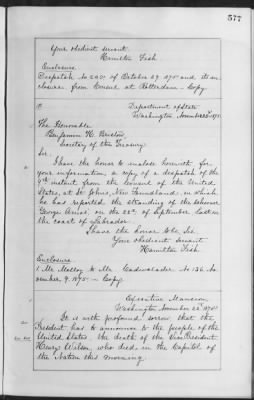 577
Your obedient servant
Hamilton Fish
Enclosure.
Despatch No 220 of October 29. 1875 and its en-
closure, from Consul at Rotterdam - Copy
Department of State
Washington, November 22d 1875
The Honorable
Benjamin H. Bristow
Secretary of the Treasury
Sir,
I have the honor to enclose herewith for
your information, a copy of a despatch of the
9th instant from the Consul of the United
States, at St Johns, New Foundland, in which
he has reported the stranding of the schooner
George Ames, on the 22d of September last on
the coast of Labrador.
I have the honor to be, Sir
Your obedient servant
Hamilton Fish
Enclosure
1. Mr Molloy to Mr Cadwalader No 136. No-
vember 9. 1875 - Copy.
Executive Mansion,
Washington November 22d 1875
It is with profound sorrow that the
President has to announce to the people of the
United States, the death of the Vice President
Henry Wilson, who died in the Capitol of
the Nation this morning.